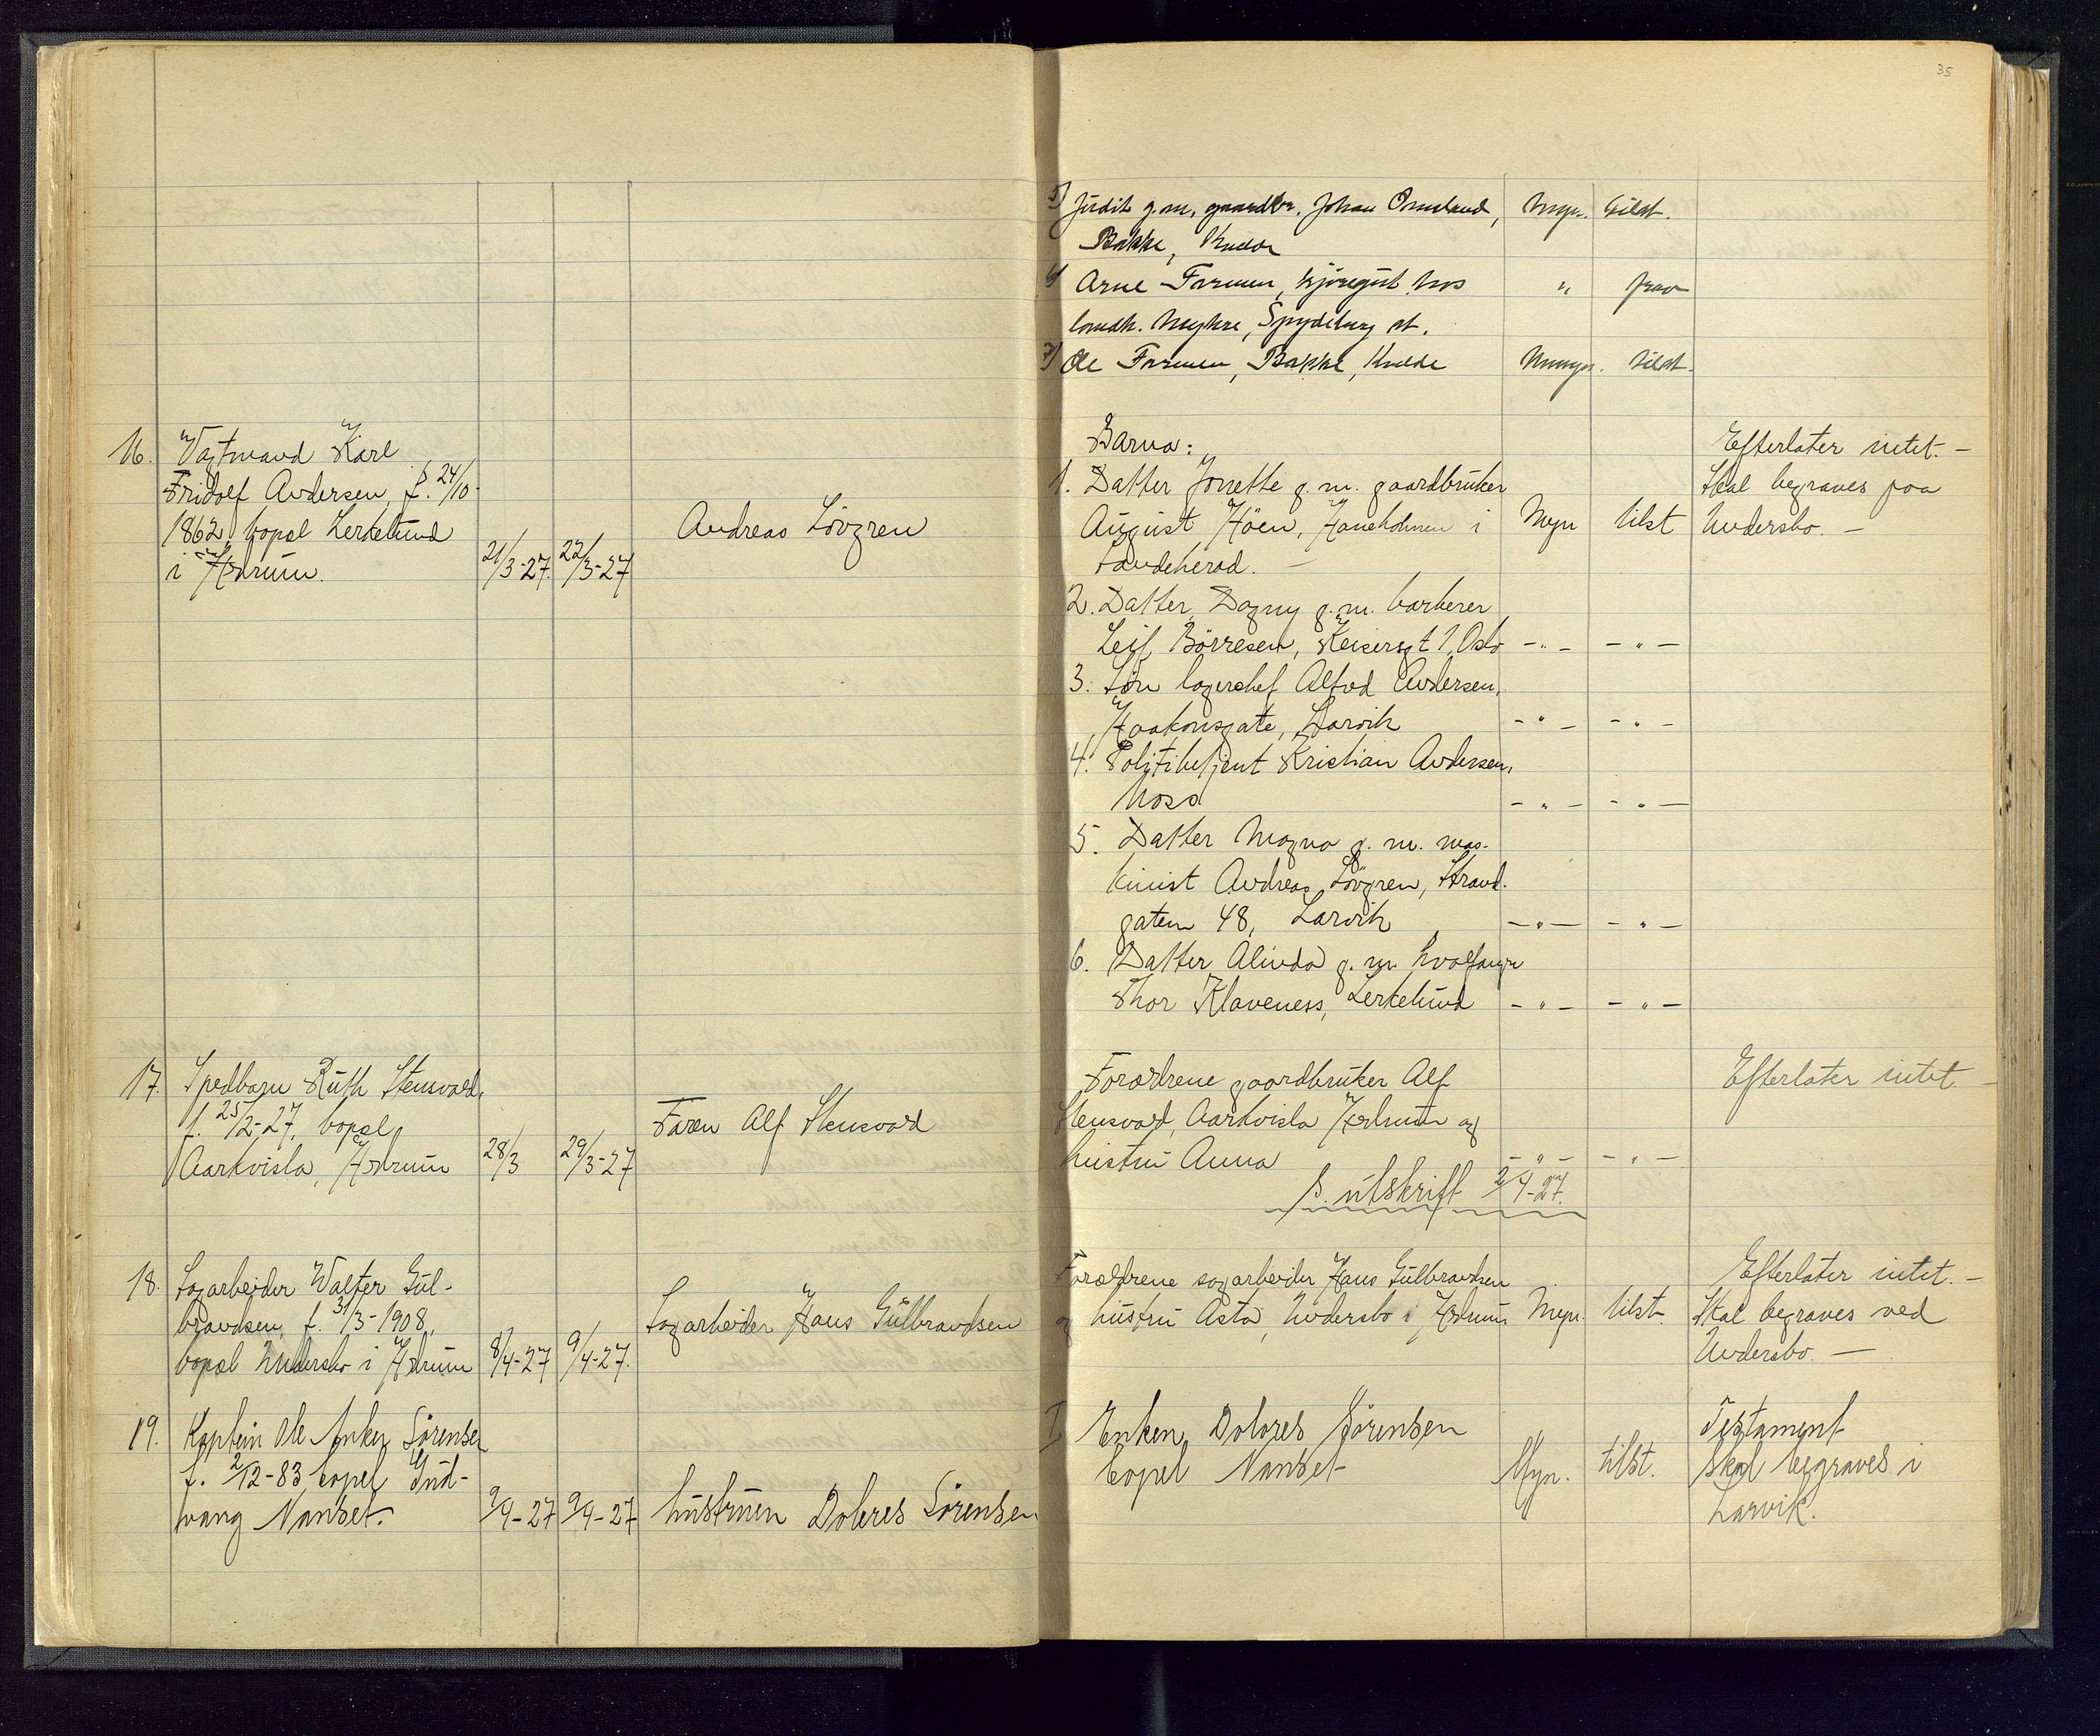 35
5) Judit g.m. gaardbr. Johan Omsland, Myn. tilst.
Bakke, Kvelde
6) Arne Farmen, hos " frav
landh. Spydeberg st.
7) Ole Farmen, Bakke, Kvelde Umyn. tilst.
16. Vagtmand Karl
Fridolf Andersen, f. 24/10-
1862, bopæl Lerkelund
i Hedrum. 21/3-27. 22/3-27
Andreas Lövgren
Barna: Efterlater intet. –
1. Datter Jonette g.m. gaardbruker Skal begraves paa
August Höen, Haneholmen i Myn tilst Undersbo. –
Sandeherad. –
2. Datter Dagny g.m. barberer
Leif Börresen, Keisersgt 1, Oslo -"- -"-
3. Sön lagerchef Alfred Andersen,
Haakonsgate, Larvik -"- -"-
4. Politibetjent Kristian Andersen,
Moss -"- -"-
5. Datter Magna g.m. mas-
kinist Andreas Lövgren, Strand-
gaten 48, Larvik -"- -"-
6. Datter Alinda g.m. hvalfanger
Thor Klaveness, Lerkelund -"- -"-
17. Spedbarn Ruth Stensvard,
f. 25/2-27, bopæl
Aarkvisla, Hedrum 28/3 29/3-27
Faren Alf Stensvard
Forældrene gaardbruker Alf Efterlater intet –
Stensvard, Aarkvisla Hedrum og
hustru Anna -"- -"-
S. utskrift 2/4-27.
18. Sagarbeider Walter Gul-
brandsen, f. 31/3-1908,
bopæl Undersbo i Hedrum 8/4-27 9/4-27.
Sagarbeider Hans Gulbrandsen
Forældrene sagarbeider Hans Gulbrandsen Efterlater intet. –
og hustru Asta, Undersbo i Hedrum Myn. tilst. Skal begraves ved
Undersbo. –
19. Kaptein Ole Anker Sörensen
f. 2/12-83 bopel Gud-
vang Nanset. 9/4-27 9/4-27 hustruen Dolores Sörensen
I Enken Dolores Sörensen Testament
bopel Nanset Myn. tilst. Skal begraves i
Larvik.